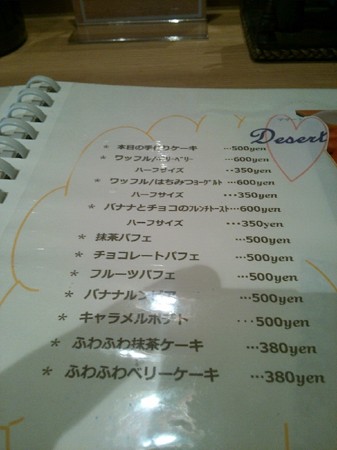 Desert
* 本日の手作りケーキ …500yen
* ワッフル/ベリーベリー …600yen
ハーフサイズ …350yen
* ワッフル/はちみつヨーグルト …600yen
ハーフサイズ …350yen
* バナナとチョコのフレンチトースト…600yen
ハーフサイズ …350yen
* 抹茶パフェ …500yen
* チョコレートパフェ …500yen
* フルーツパフェ …500yen
* バナナ …500yen
* キャラメルポテト …500yen
* ふわふわ抹茶ケーキ …380yen
* ふわふわベリーケーキ …380yen